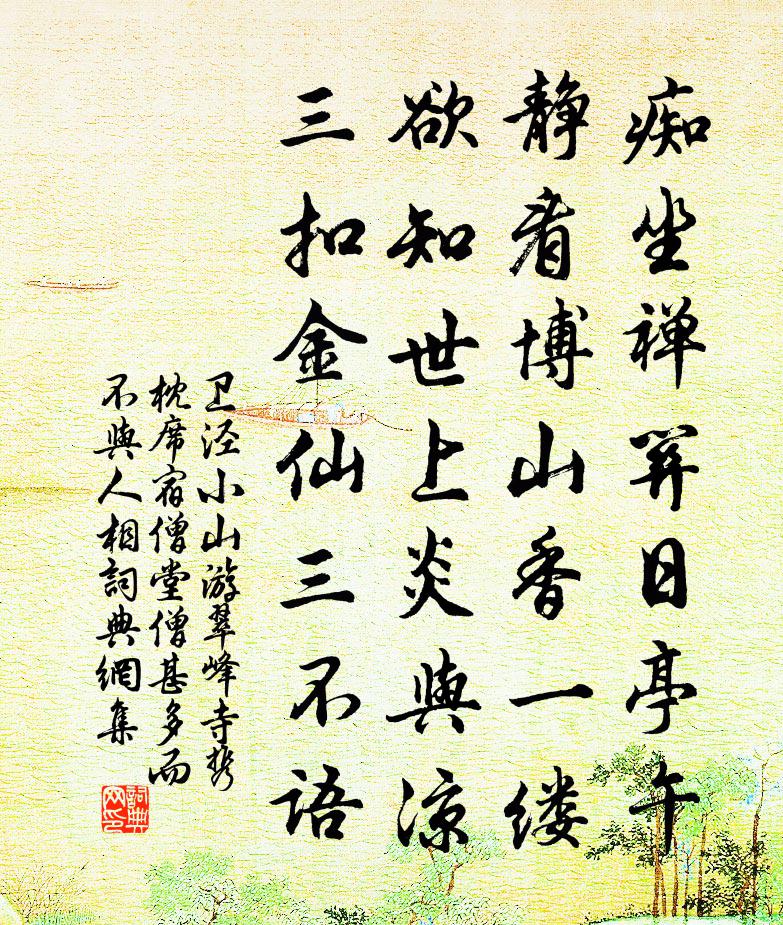 痴坐禅關日亭午
静看博山香一缕
欲知世上炎與凉
三扣金仙三不语
卫泾小山游翠峰寺携
枕席宿僧堂僧甚多而
不與人相詞典網集
詞典网印